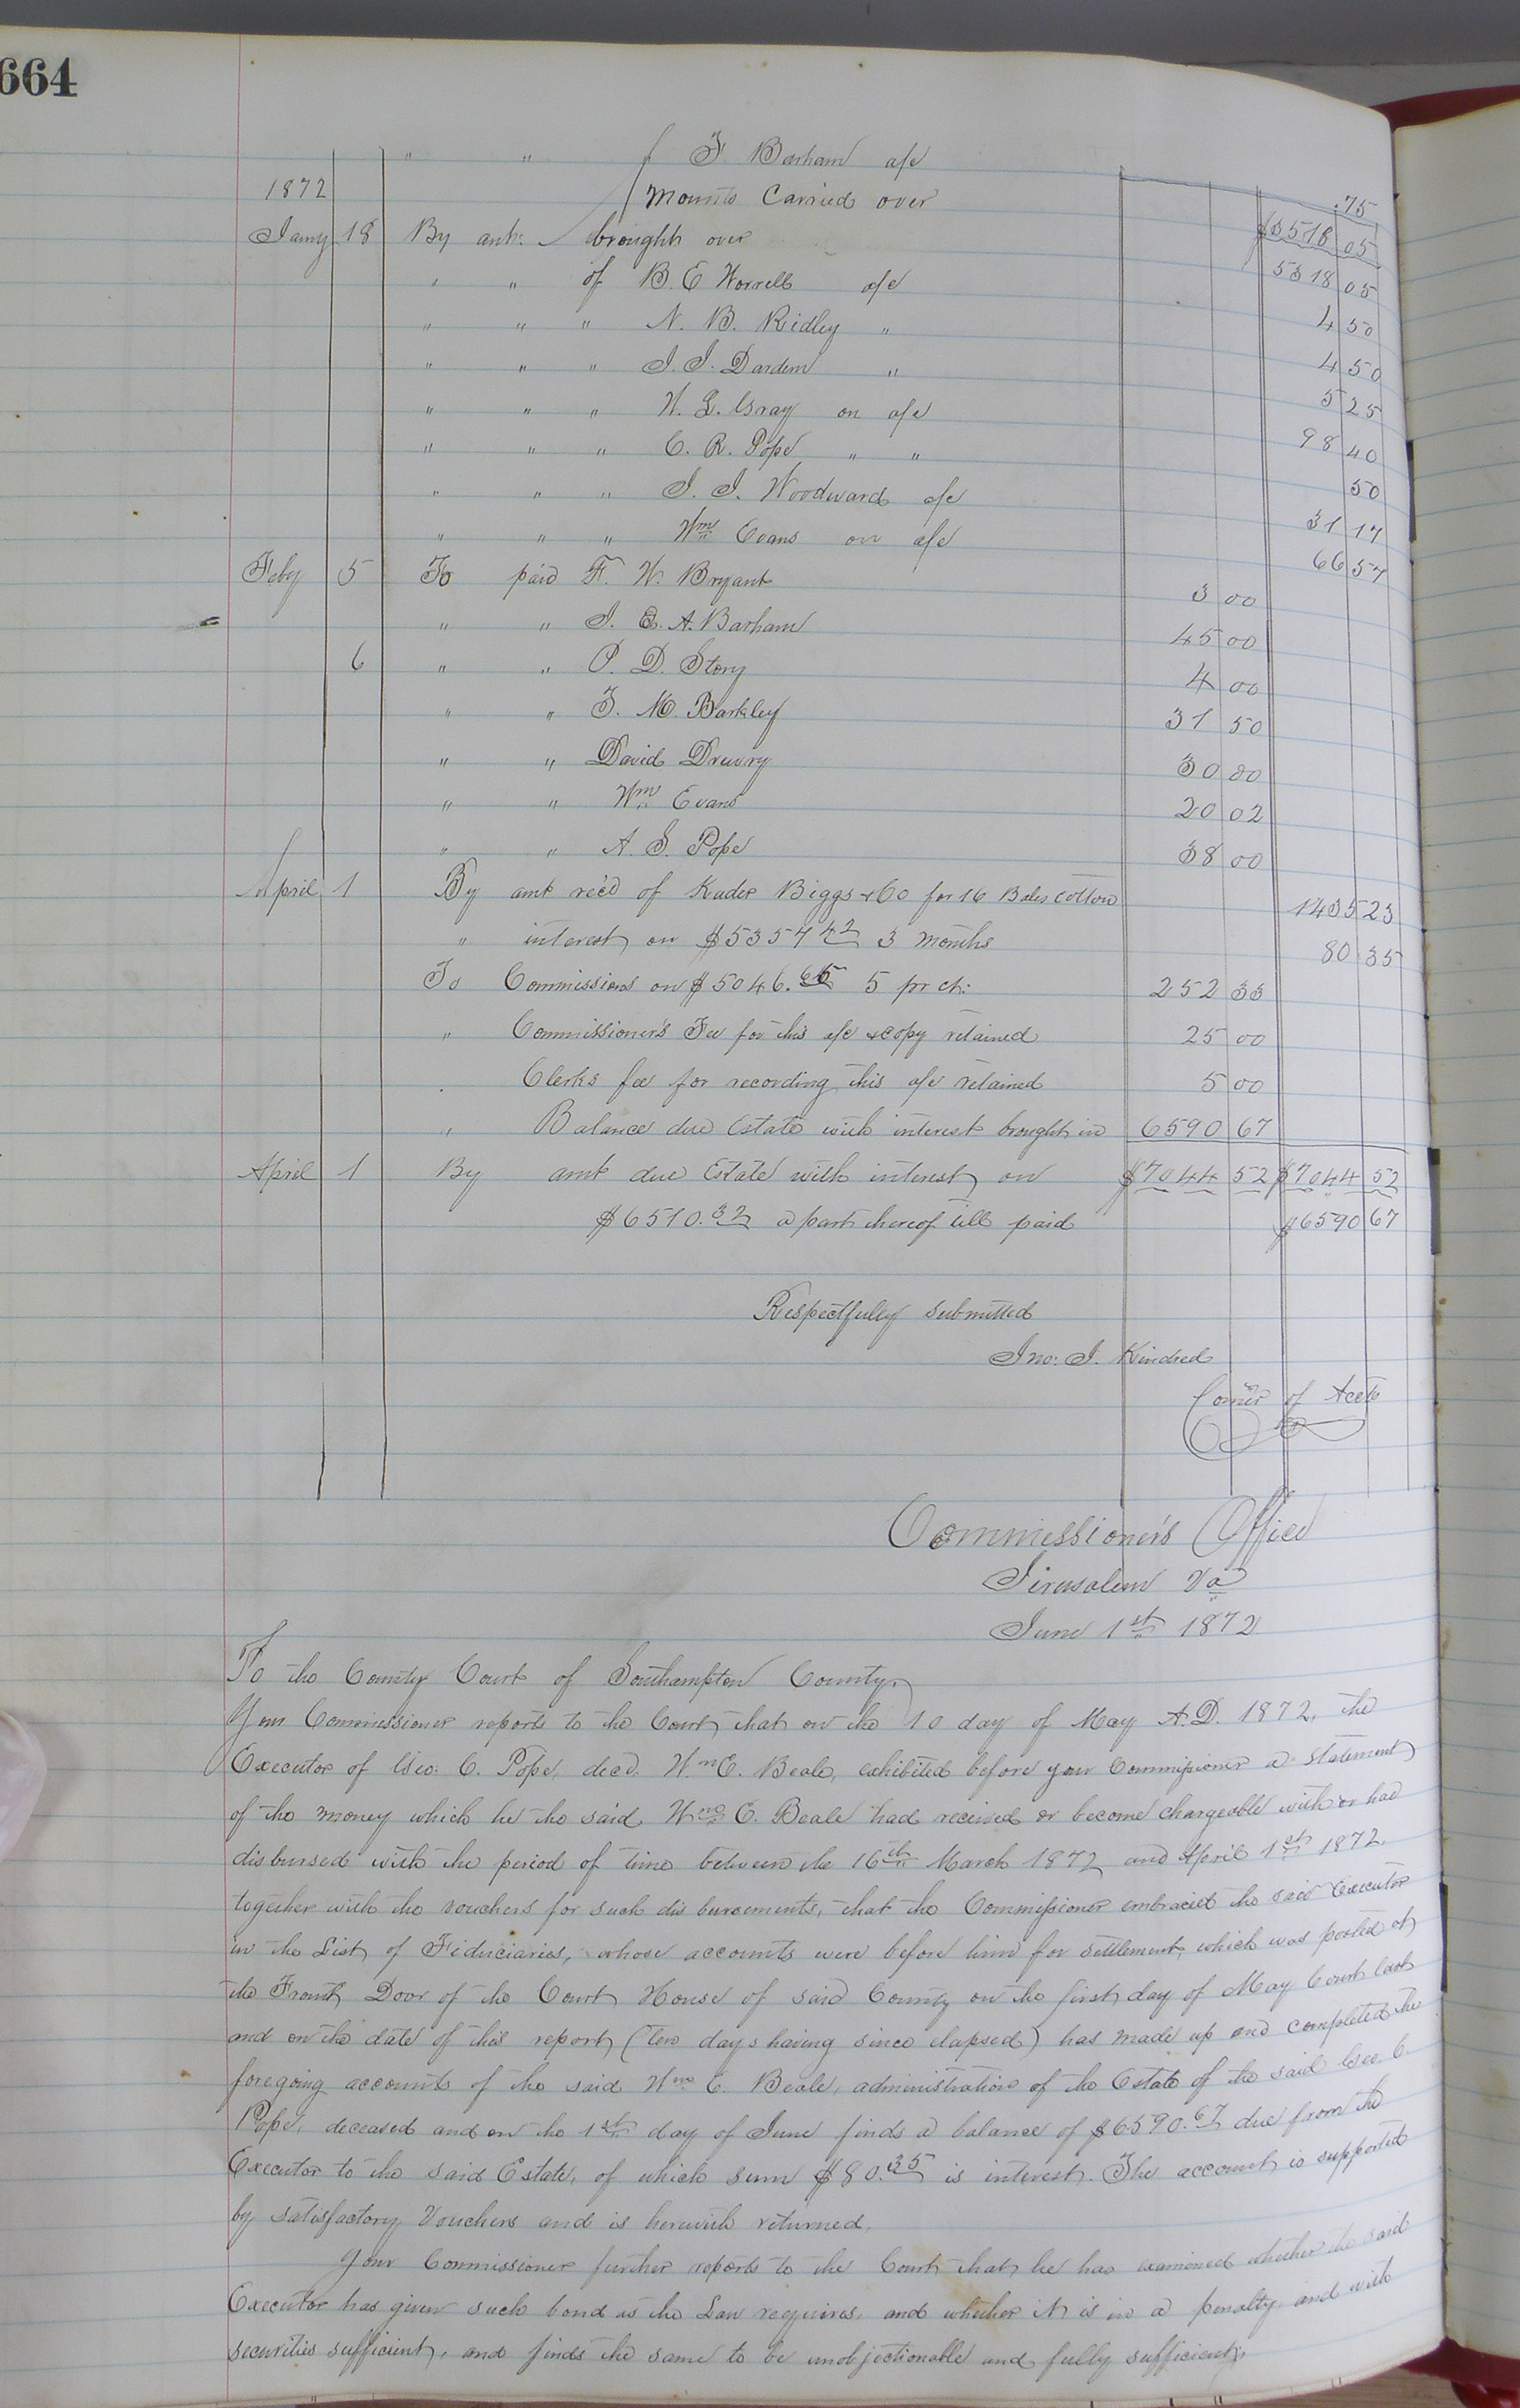 664
" " " F. Barham a/c .75
1872 Amounts Carried over $5318 05
Jany 18 By amt: brought over 5318 05
" " of B. E Worrell a/c 4 50
" " " N. B. Ridley " 4 50
" " " J. J. Darden " 5 25
" " " W. L. Gray on a/c 98 40
" " " C. R. Pope " " 50
" " " J. J. Woodward a/c 31 17
" " " Wm Evans on a/c 66 57
Feby 5 To paid F. W. Bryant 3 00
" " J. E. A. Barham 45 00
6 " " P. D. Story 4 00
" " T. M. Barkley 31 50
" " David Drewry 30 00
" " Wm Evans 20 02
" " A. S. Pope 38 00
April 1 By amt rec'd of Kader Biggs & Co for 16 Bales cotton 1435 23
" interest on $5357 42 3 months 80 35
To Commissions on $5046.65 5 pr ct: 252 33
" Commissioner's Fee for this a/c & copy retained 25 00
Clerks fee for recording this a/c retained 5 00
" Balance due Estate with interest brought in 6590 67
April 1 By amt due Estate with interest on $7044 52 $7044 52
$6510.32 a part thereof till paid $6590 67
Respectfully submitted
Jno: J. Kindred
Comr of Accts
Commissioner's Office
Jerusalem Va
June 1st 1872
To the County Court of Southampton County.
Your Commissioner reports to the Court, that on the 10 day of May A.D. 1872, the
Executor of Geo: C. Pope, decd. Wm E. Beale, exhibited before your Commissioner a statement
of the money which he the said Wm E. Beale had received or become chargeable with or had
disbursed with the period of time between the 16th March 1872 and April 1st 1872.
together with the vouchers for such disbursements, that the Commissioner embraced the said Executor
in the List of Fiduciaries, whose accounts were before him for settlement, which was posted at
the Front Door of the Court House of said County on the first day of May Court last
and on the date of this report, (ten days having since elapsed) has made up and completed the
foregoing accounts of the said Wm E. Beale, administration of the Estate of the said Geo. C.
Pope, deceased and on the 1st day of June finds a balance of $6590.67 due from the
Executor to the said Estate, of which sum $80.35 is interest. The account is supported
by satisfactory Vouchers and is herewith returned.
Your Commissioner further reports to the Court that he has examined whether the said
Executor has given such bond as the Law requires, and whether it is in a penalty and with
securities sufficient, and finds the same to be unobjectionable and fully sufficient,